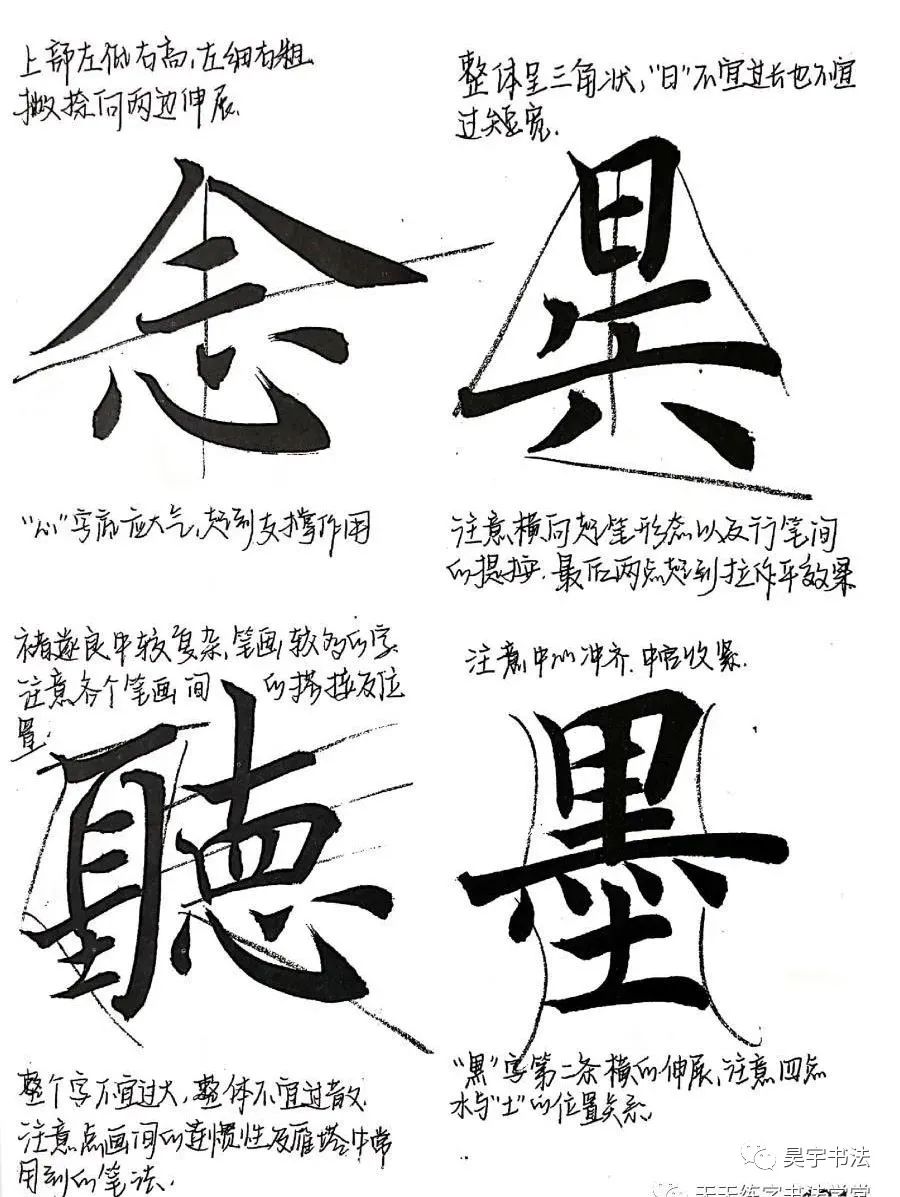 上部左低右高,左细右粗.
撇捺向两边伸展.
念
"心"字底应大气,起到支撑作用
整体呈三角状,"日"不宜过长也不宜
过短宽.
昗
注意横向起笔形态以及行笔间
的提按.最后两点起到拉作平效果
褚遂良中较复杂,笔画较多的字.
注意各个笔画间的搭接及位
置.
聽
整个字不宜过大,整体不宜过散.
注意点画间的连惯性及雁塔中常
用到的笔法.
注意中心冲齐.中宫收紧.
墨
"黑"字第二条横的伸展,注意四点
水与"土"的位置关系.
昊宇书法
天天练字书法学堂